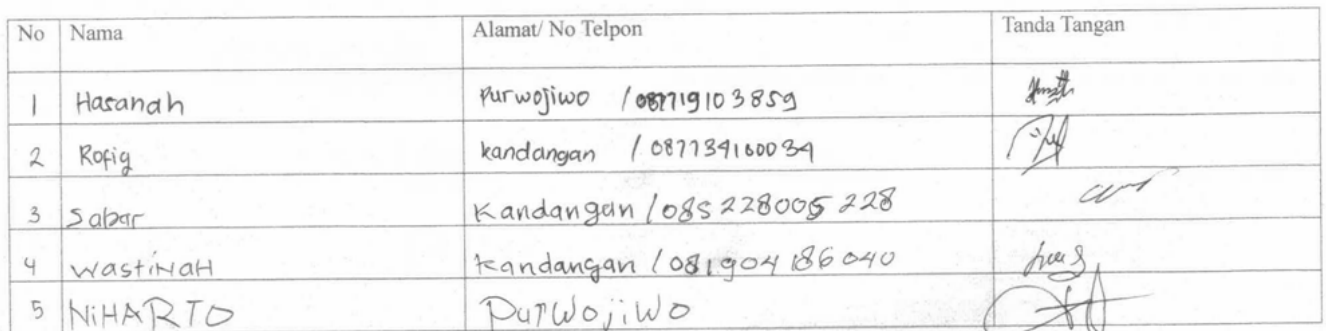 No Nama Alamat/ No Telpon Tanda Tangan
1 Hasanah Purwojiwo / 087719103859
2 Rofiq kandangan / 087739100034
3 Sabar Kandangan / 085228005228
4 WastiNaH Kandangan / 081904186040
5 NiHARTO PurWojiWo